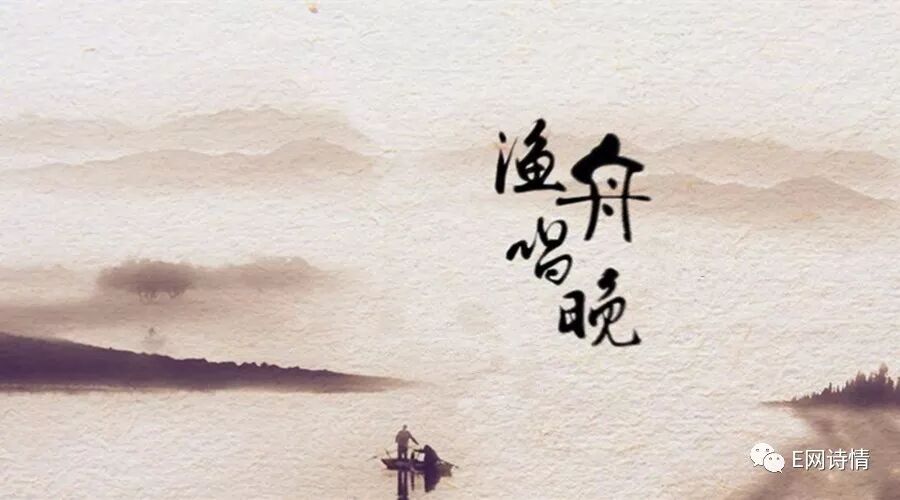 渔舟
唱晚
E网诗情